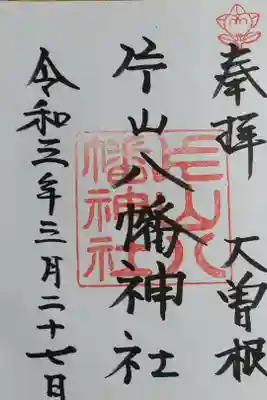 奉拝 大曽根
片山八幡神社
令和三年三月二十七日
片山八幡神社